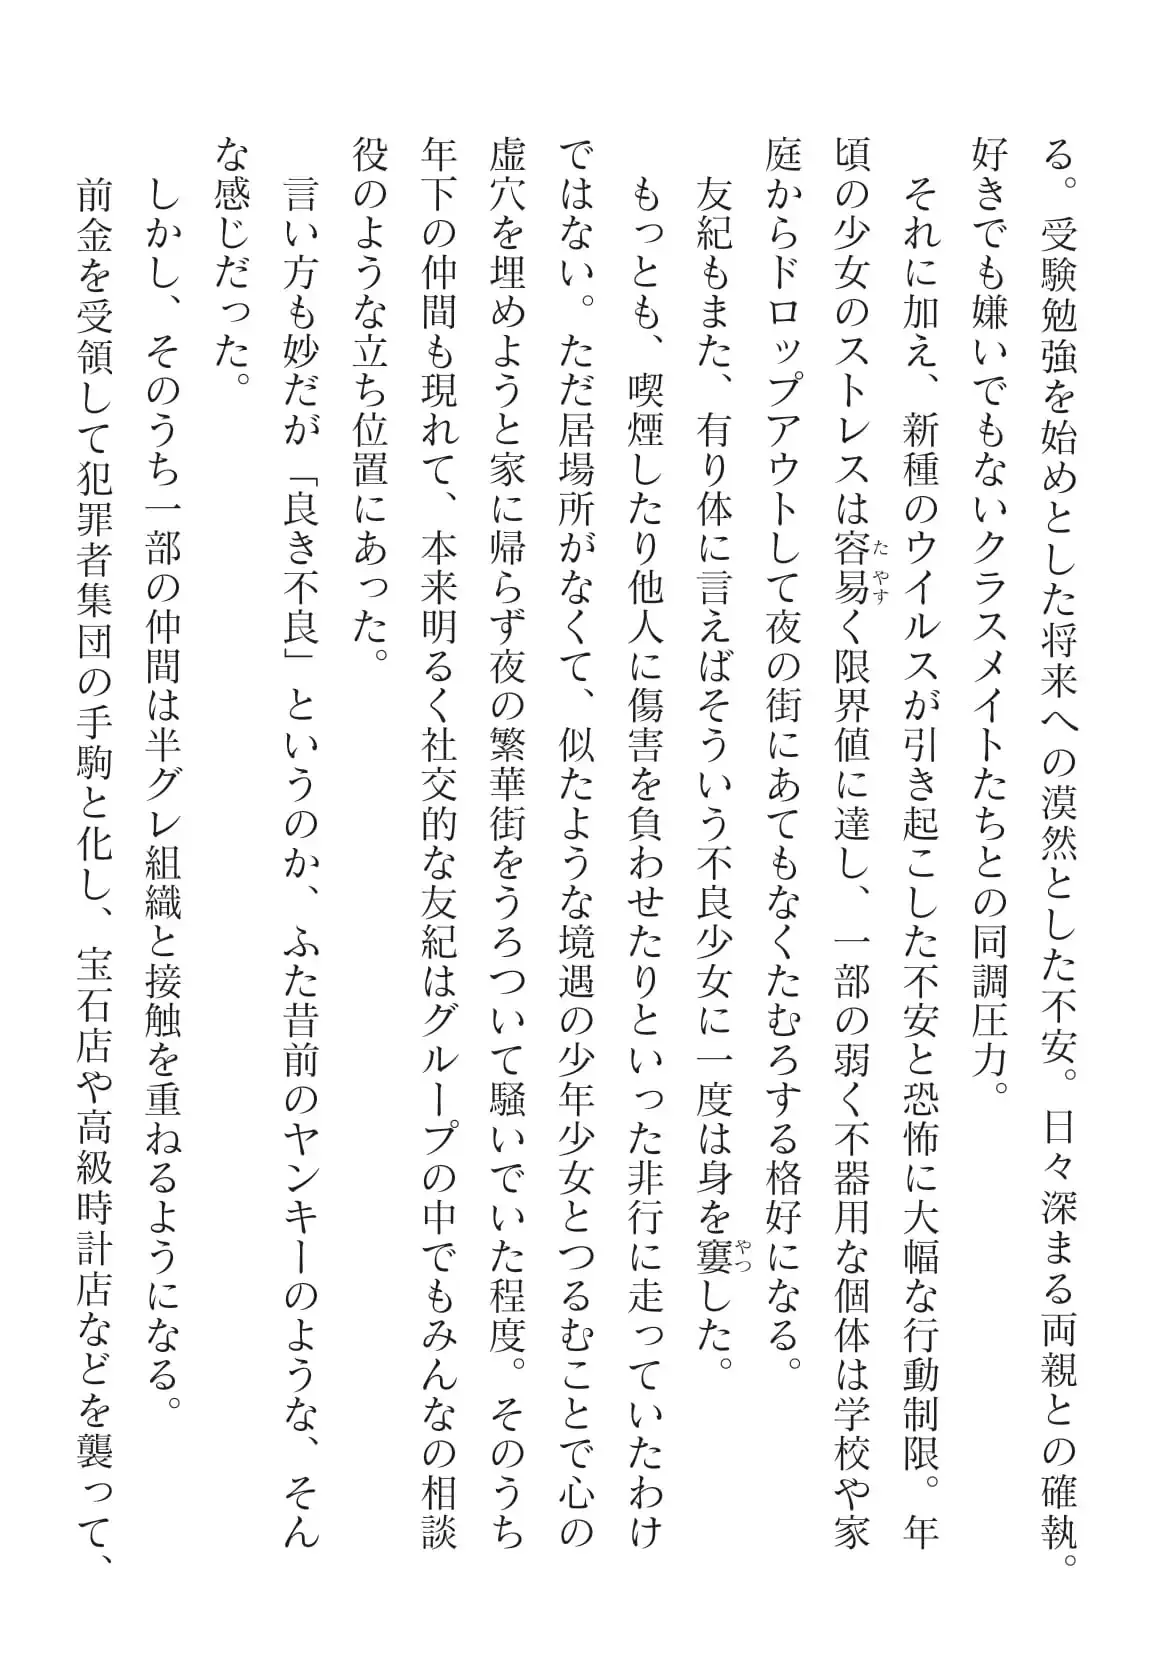 る。受験勉強を始めとした将来への漠然とした不安。日々深まる両親との確執。
好きでも嫌いでもないクラスメイトたちとの同調圧力。
　それに加え、新種のウイルスが引き起こした不安と恐怖に大幅な行動制限。年
頃の少女のストレスは容易く限界値に達し、一部の弱く不器用な個体は学校や家
庭からドロップアウトして夜の街にあてもなくたむろする格好になる。
　友紀もまた、有り体に言えばそういう不良少女に一度は身を窶した。
　もっとも、喫煙したり他人に傷害を負わせたりといった非行に走っていたわけ
ではない。ただ居場所がなくて、似たような境遇の少年少女とつるむことで心の
虚穴を埋めようと家に帰らず夜の繁華街をうろついて騒いでいた程度。そのうち
年下の仲間も現れて、本来明るく社交的な友紀はグループの中でもみんなの相談
役のような立ち位置にあった。
　言い方も妙だが「良き不良」というのか、ふた昔前のヤンキーのような、そん
な感じだった。
　しかし、そのうち一部の仲間は半グレ組織と接触を重ねるようになる。
　前金を受領して犯罪者集団の手駒と化し、宝石店や高級時計店などを襲って、